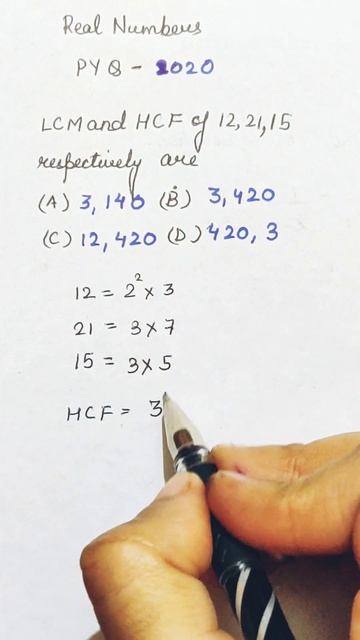 Real Numbers
PYQ - 2020
LCM and HCF of 12, 21, 15
respectively are
(A) 3, 140 (B) 3, 420
(C) 12, 420 (D) 420, 3
12 = 2² × 3
21 = 3 × 7
15 = 3 × 5
HCF = 3